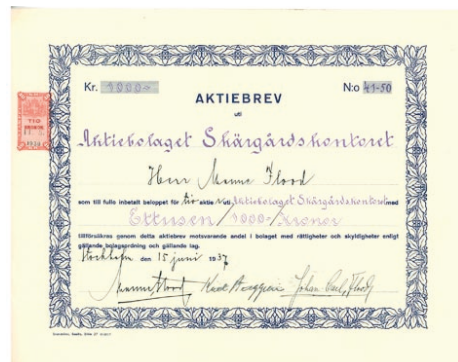 Kr. 1000:-
N:o 41-50
AKTIEBREV
uti
Aktiebolaget Skärgårdskontoret
Herr Manne Flood
som till fullo inbetalt beloppet för tio aktier uti Aktiebolaget Skärgårdskontoret med
Ettusen/1000/Kronor
tillförsäkras genom detta aktiebrev motsvarande andel i bolaget med rättigheter och skyldigheter enligt
gällande bolagsordning och gällande lag.
Stockholm den 15 juni 1937
Manne Flood
Johan Carl Flood
TIO